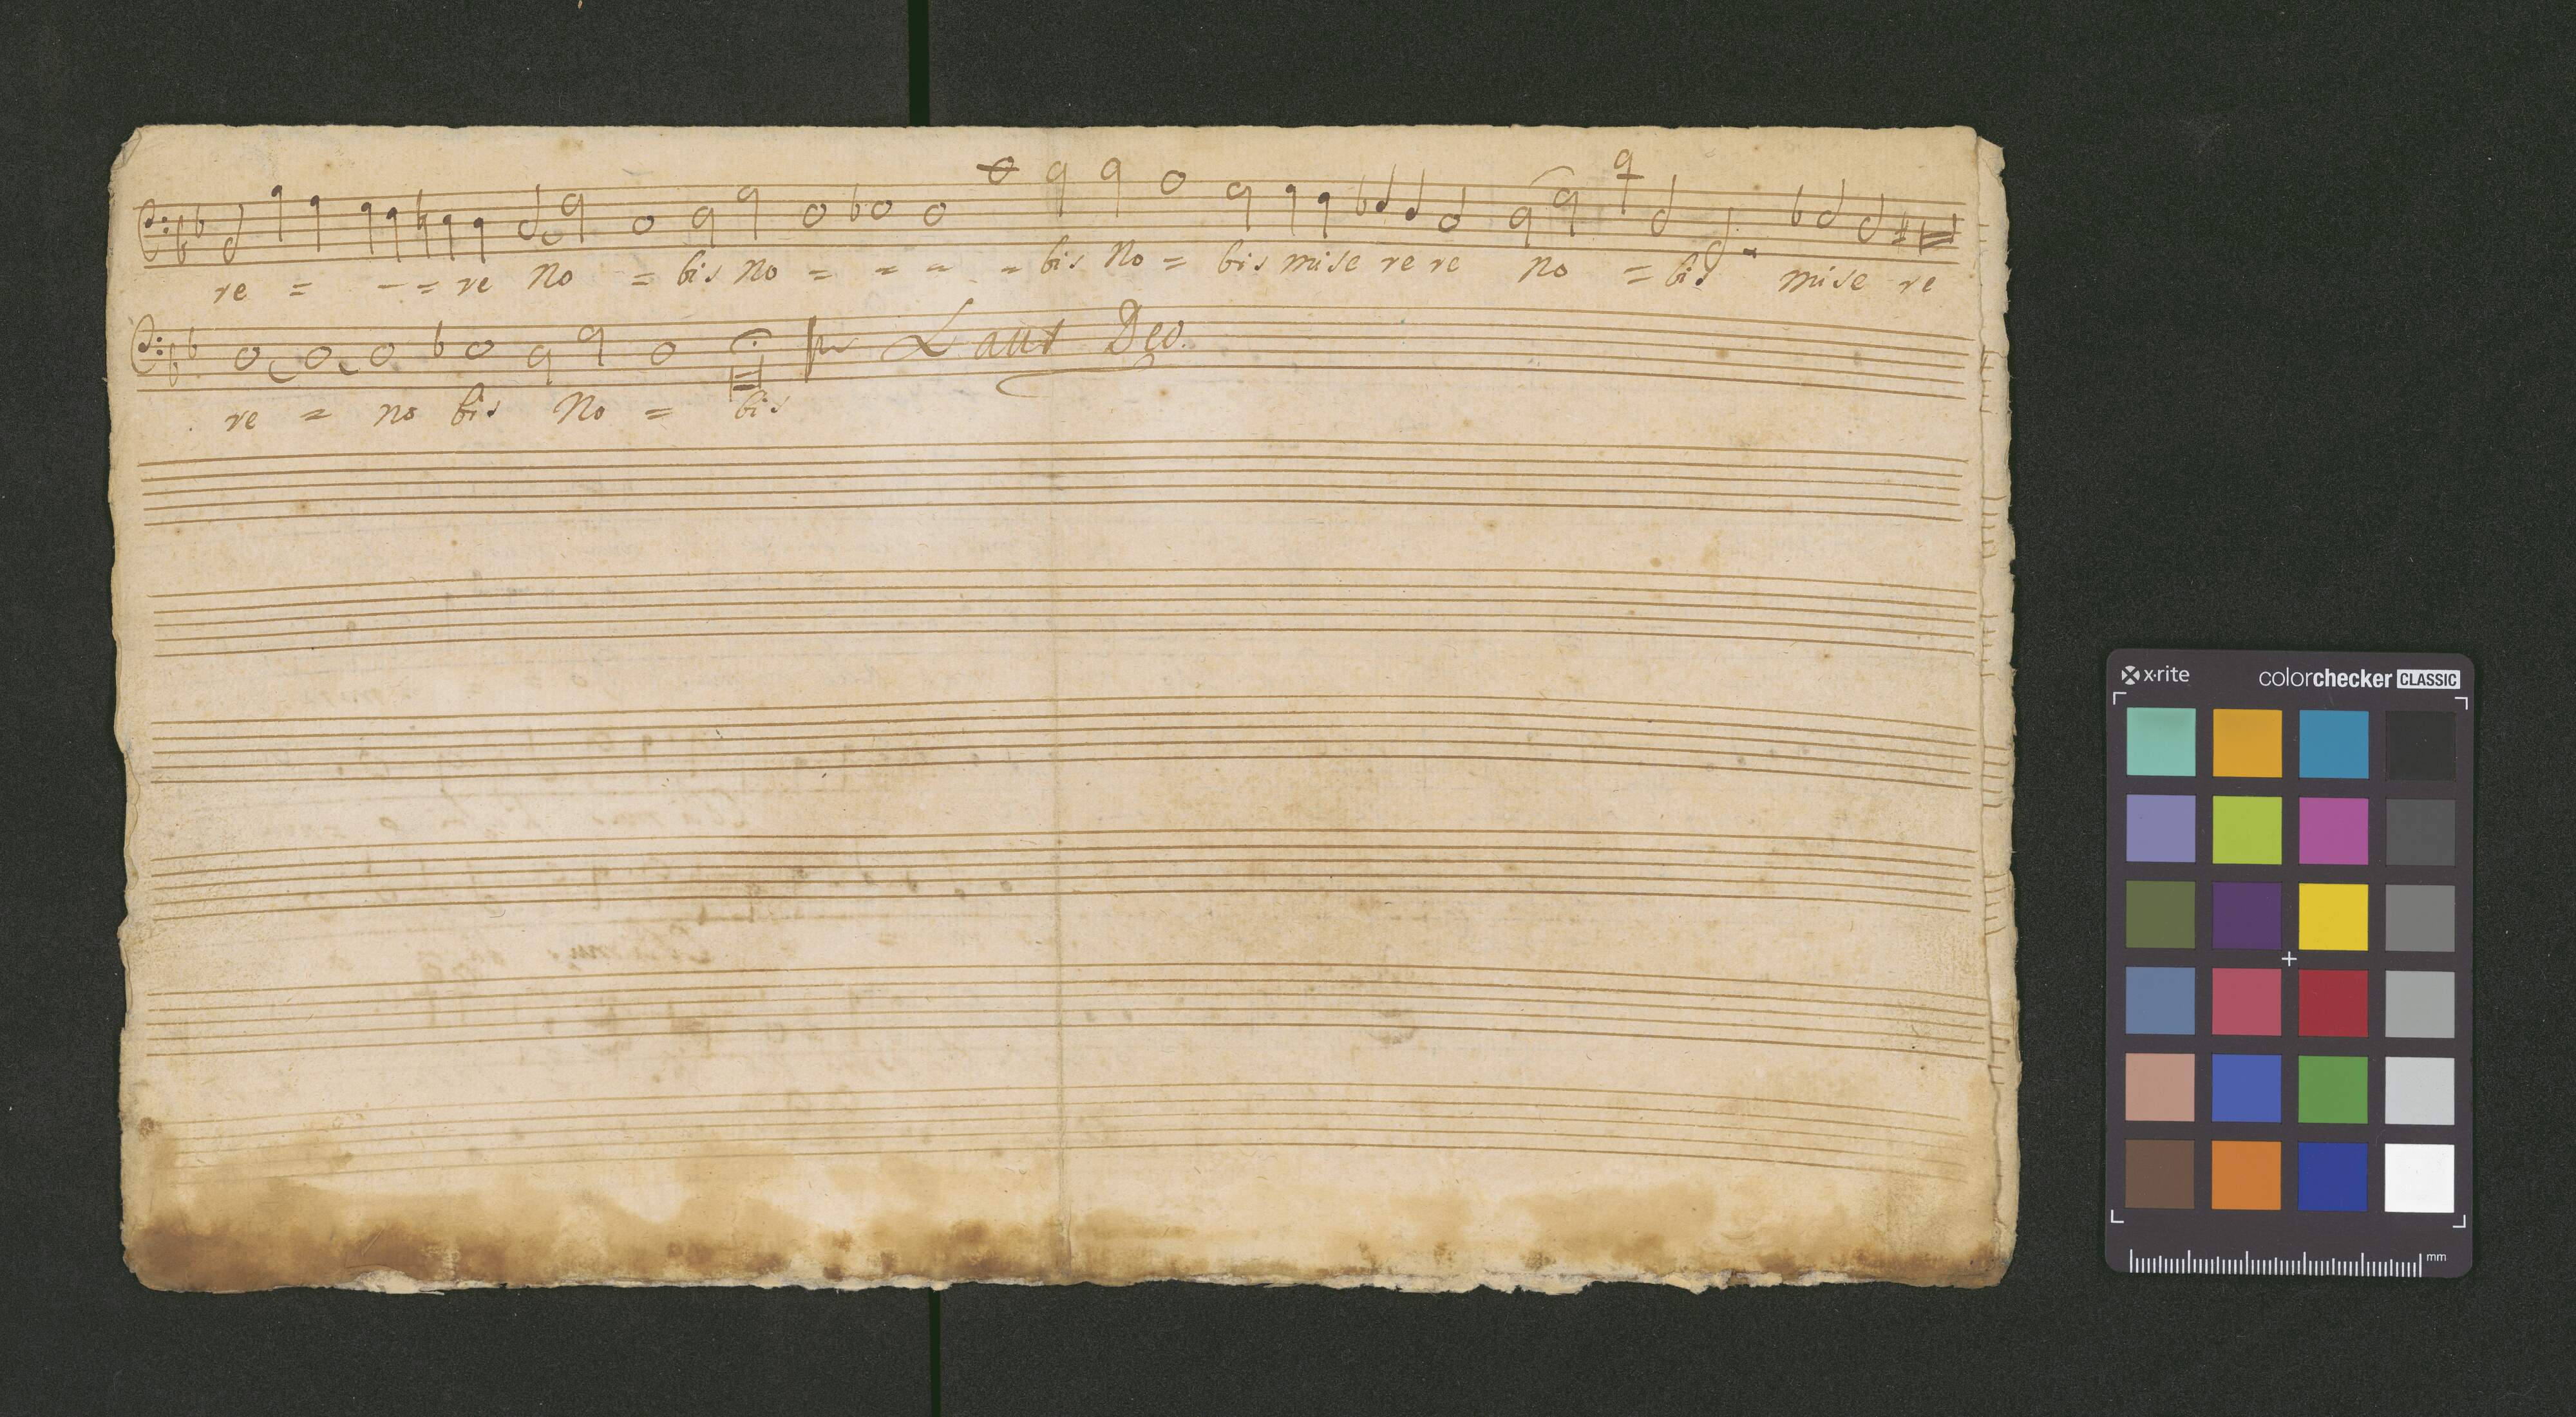 re = - = re No = bis No = = = = bis No = bis mise re re no = bis mise re
Laus Deo.
re = no bis No = bis
x·rite colorchecker CLASSIC
mm